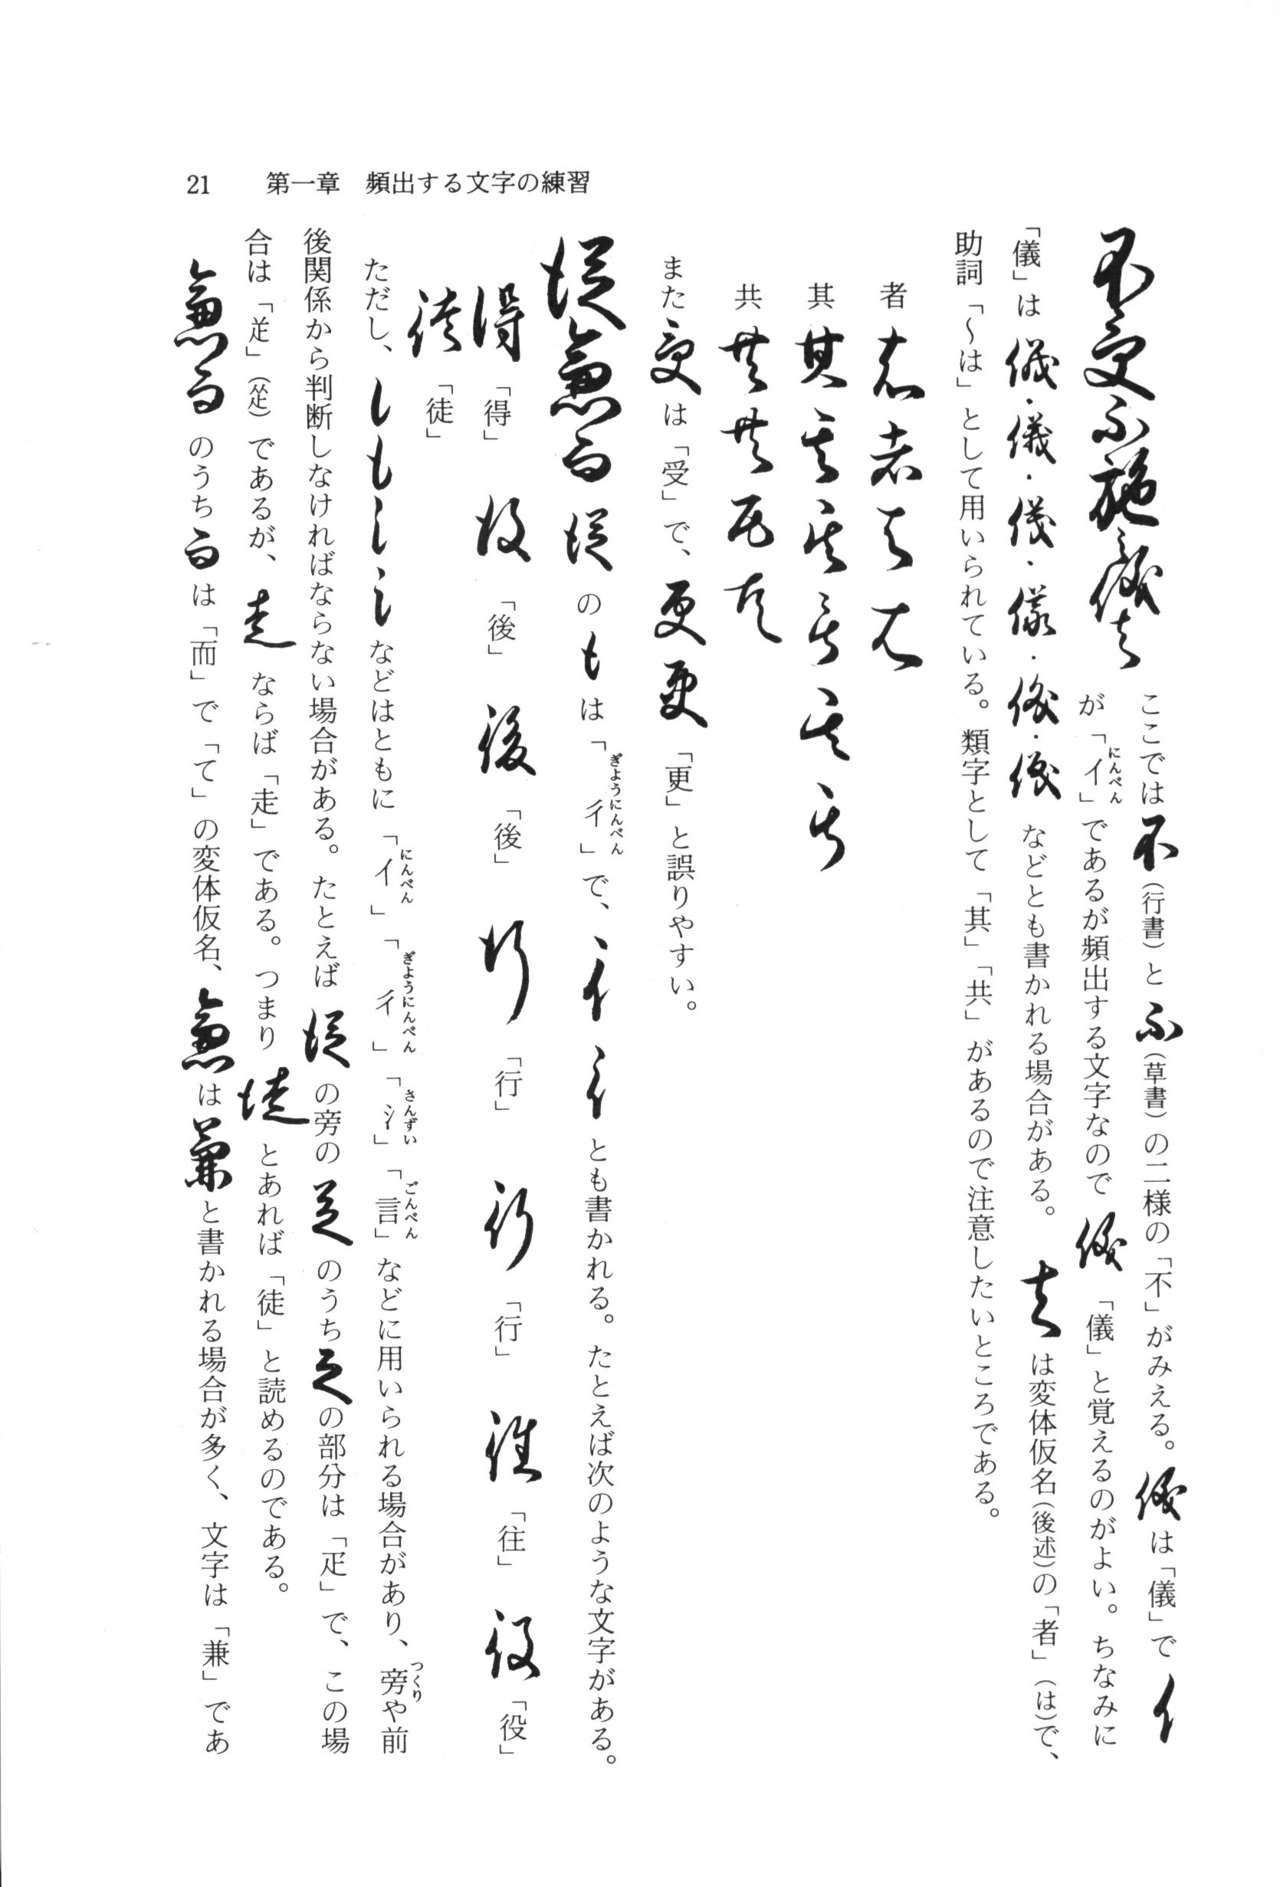 21　第一章　頻出する文字の練習
不更不施儀者
ここでは不（行書）と不（草書）の二様の「不」がみえる。儀は「儀」でイ
が「イ」であるが頻出する文字なので儀「儀」と覚えるのがよい。ちなみに
「儀」は儀・儀・儀・儀・儀・儀などとも書かれる場合がある。者は変体仮名（後述）の「者」（は）で、
助詞「〜は」として用いられている。類字として「其」「共」があるので注意したいところである。
者　者者者者
其　其其其其其其
共　共共共共
また受は「受」で、更更「更」と誤りやすい。
従兼而　従の彳は「彳」で、彳彳とも書かれる。たとえば次のような文字がある。
得「得」　後「後」　後「後」　行「行」　行「行」　往「往」　役「役」
徒「徒」
ただし、などはともに「イ」「彳」「氵」「言」などに用いられる場合があり、旁や前
後関係から判断しなければならない場合がある。たとえば従の旁ののうちの部分は「疋」で、この場
合は「𨑒」（䢕）であるが、走ならば「走」である。つまり徒とあれば「徒」と読めるのである。
兼而のうち而は「而」で「て」の変体仮名、兼は兼と書かれる場合が多く、文字は「兼」であ